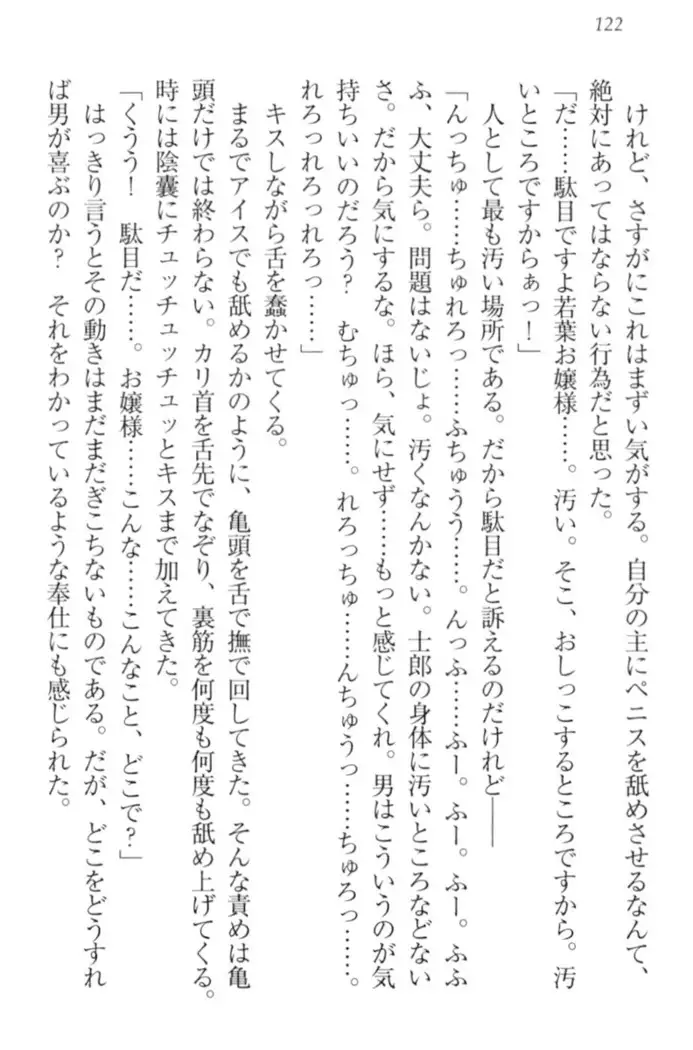 122
けれど、さすがにこれはまずい気がする。自分の主にペニスを舐めさせるなんて、
絶対にあってはならない行為だと思った。
「だ……駄目ですよ若葉お嬢様……。汚い。そこ、おしっこするところですから。汚
いところですからぁっ！」
人として最も汚い場所である。だから駄目だと訴えるのだけれど――
「んっちゅ……ちゅれろっ……ふちゅうう……。んっふ……ふー。ふー。ふー。ふふ
ふ、大丈夫ら。問題はないじょ。汚くなんかない。士郎の身体に汚いところなどない
さ。だから気にするな。ほら、気にせず……もっと感じてくれ。男はこういうのが気
持ちいいのだろう？　むちゅっ……。れろっちゅ……んちゅうっ……ちゅろっ……。
れろっれろっれろっ……」
キスしながら舌を蠢かせてくる。
まるでアイスでも舐めるかのように、亀頭を舌で撫で回してきた。そんな責めは亀
頭だけでは終わらない。カリ首を舌先でなぞり、裏筋を何度も何度も舐め上げてくる。
時には陰囊にチュッチュッチュッとキスまで加えてきた。
「くうう！　駄目だ……。お嬢様……こんな……こんなこと、どこで？」
はっきり言うとその動きはまだまだぎこちないものである。だが、どこをどうすれ
ば男が喜ぶのか？　それをわかっているような奉仕にも感じられた。